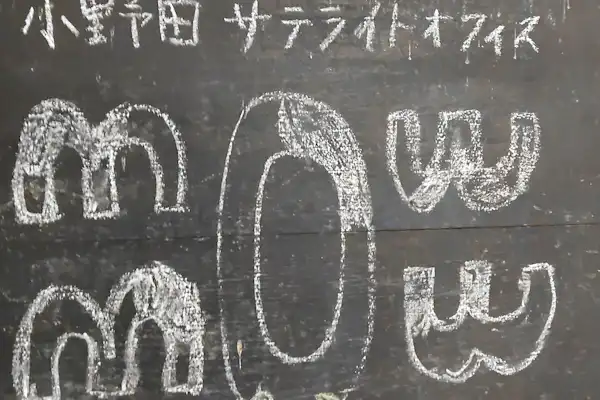 小野田 サテライトオフィス
m O w
m w